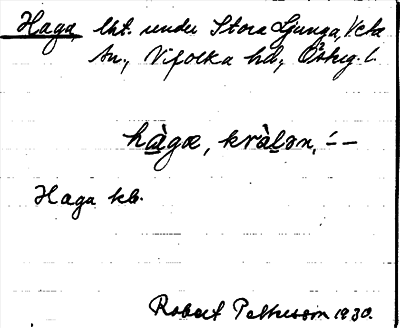 Haga, lht. under Stora Ljunga, Veta
sn., Vifolka hd, Östeg. l.
hàgæ, kràlən, ´ – –
Haga kb.
Robert Pettersson 1930.